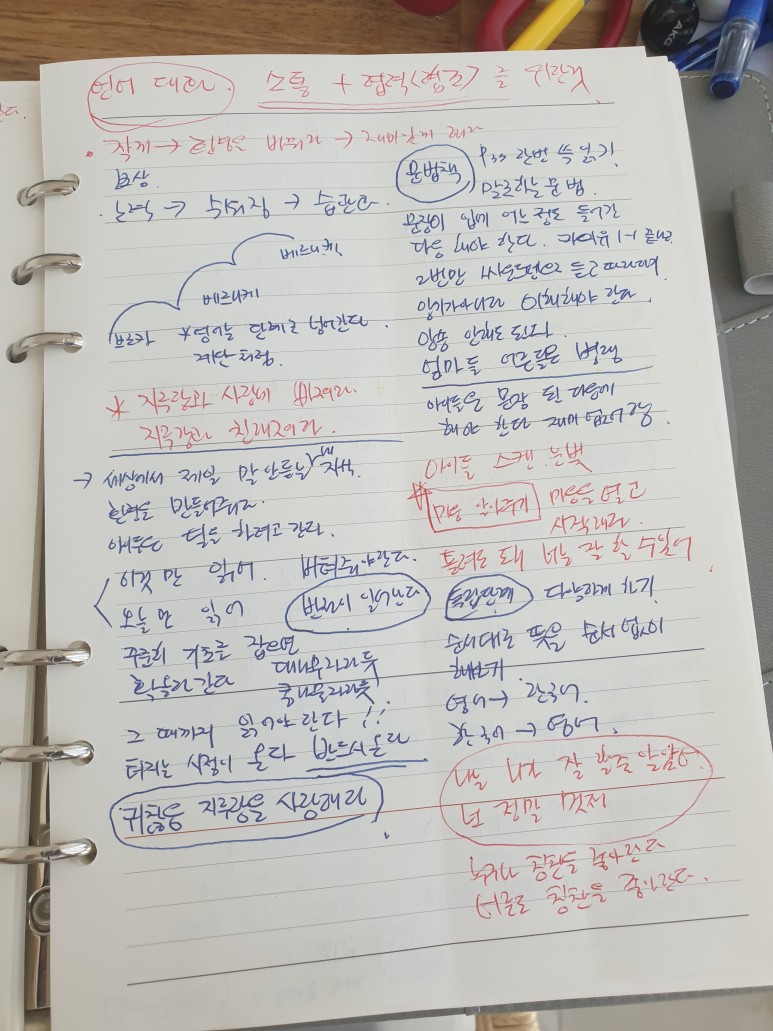 언어 대화. 소통 + 협력<협조>를 위한것
작게 → 환경을 바꿔라 → 재미있게 해라
보상.
노력 → 숙뢰징 → 습관화.
베르니케
베르니케
브로카 *영어는 단계로 넘어간다.
계단처럼.
* 지루함과 사랑에 빠져라.
지루함과 친해져라.
→ 세상에서 제일 말 안듣는 내 자식.
환경을 만들어줘라.
애들은 딜을 하려고 간다.
이것만 읽어. 버텨줘야한다.
오늘만 읽어 반드시 일어난다
꾸준히 기초를 잡으면
확 늘러간다 대나무자라듯
콩나물자라듯
그 때까지 읽어야 한다!!
터지는 시점이 온다 반드시온다
귀찮음 지루함을 사랑해라
문법책 P33 한번 쓱 읽기.
말로하는 문법.
문장이 입에 어느정도 들어간
다음 해야 한다. 1-1 끝내고
2번만 싸운드펜으로 듣고 따라하며
암기가아니라 이해해야 한다.
암송 안해도 된다.
엄마들 어른들은 병행
아이들은 문장 된 다음에
해야 한다 재미 없어 함.
아이들 스캔 눈빛
* 마음 안아주기 마음을 열고
시작해라.
틀려도 돼 너는 잘 할 수 있어.
독립단계 다양하게 하기.
순서대로 뜻을 순서 없이
해보기
영어 → 한국어.
한국어 → 영어.
나는 니가 잘 할줄 알았어.
넌 정말 멋져
누구나 칭찬을 좋아한다
어른도 칭찬을 좋아한다.
AKG